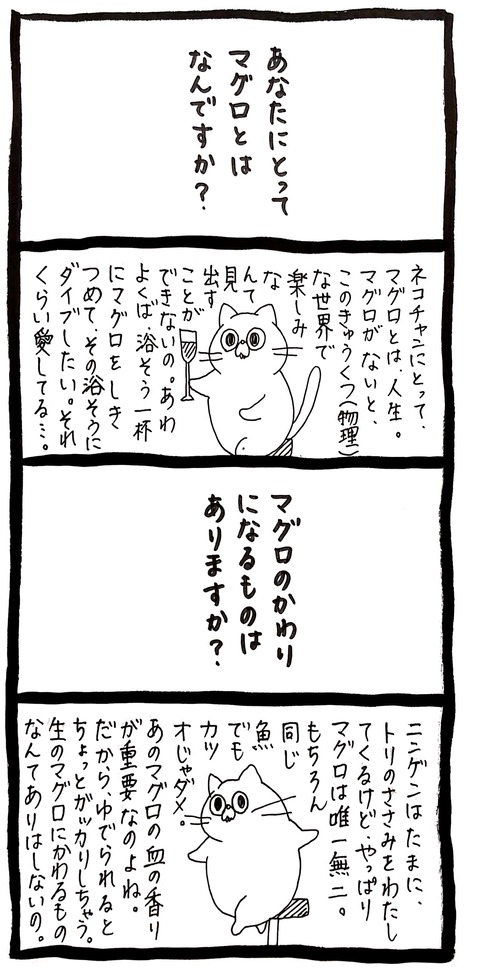 あなたにとって
マグロとは
なんですか?
ネコチャンにとって、
マグロとは、人生。
マグロがないと、
このきゅうくつ(物理)
な世界で
楽しみ
な
んて
見
出す
ことが
できないの。あわ
よくば、浴そう一杯
にマグロをしき
つめて、その浴そうに
ダイブしたい。それ
くらい愛してる…。
マグロのかわり
になるものは
ありますか?
ニンゲンはたまに、
トリのささみをわたし
てくるけど、やっぱり
マグロは唯一無二。
もちろん
同じ
魚
でも
カツ
オじゃダメ。
あのマグロの血の香り
が重要なのよね。
だから、ゆでられると
ちょっとガッカリしちゃう。
生のマグロにかわるもの
なんてありはしないの。